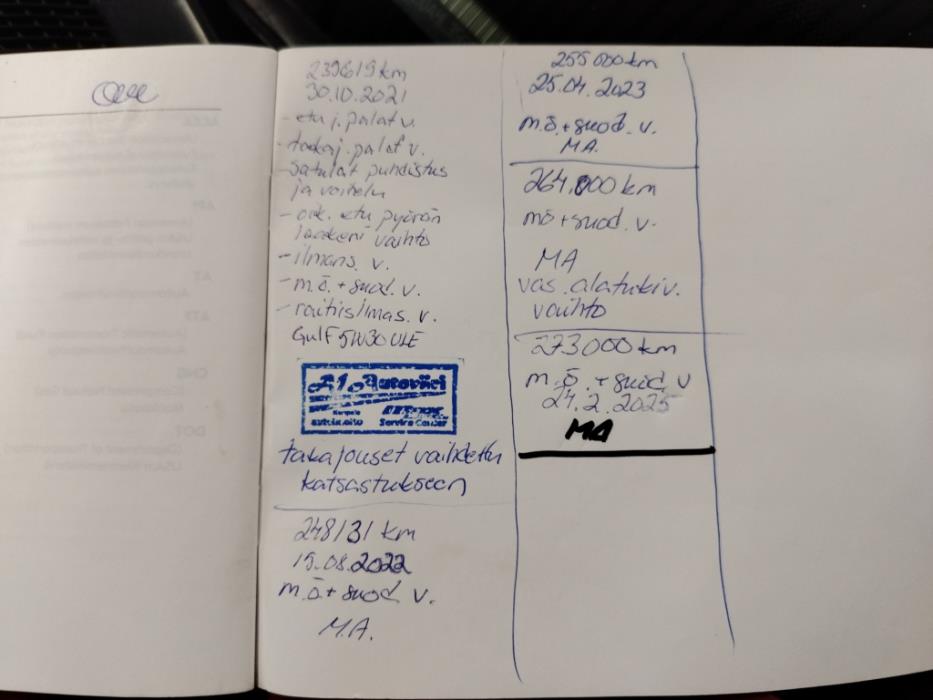 239619 km
30.10.2021
- etu j. palat v.
- takaj. palat v.
- Satulat puhdistus
ja voitelu
- oik. etu pyörän
laakeri vaihto
- ilmans. v.
- m.ö. + suod. v.
- raitisilmas. v.
Gulf 5W30 ULE
A1 Autoviici
autohuolto Service Center
takajouset vaihdettu
katsastukseen
248131 km
15.08.2022
m.ö + suod. v.
M.A.
255 000 km
25.04.2023
m.ö. + suod. v.
MA.
264.000 km
mö + suod. v.
MA
vas. alatukiv.
vaihto
273000 km
m.ö. + suod. v
24.2.2025
MA